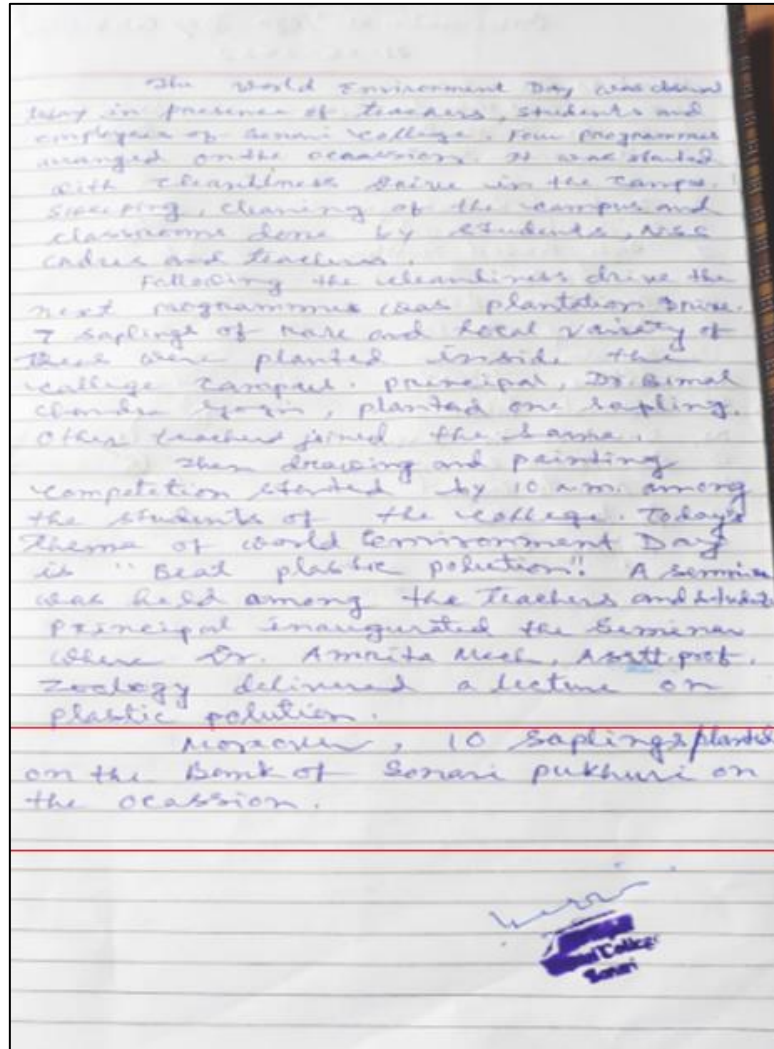 The World Environment Day was
today in presence of teachers, students and
employees of Sonari College. Four programmes
arranged on the ocaassion. It was started
with cleanliness drive in the campus.
Sweeping, cleaning of the campus and
classrooms done by students, NSS
cadres and teachers.
Following the cleanliness drive the
next programmes was plantation drive.
7 saplings of rare and local variety of
were planted inside the
college campus. Principal, Dr. Bimal
Chandra Gogoi, planted one sapling.
Other teachers joined the same.
Then drawing and painting
competetion started by 10 a.m. among
the students of the college. Today's
theme of World Environment Day
is "Beat plastic polution". A
was held among the teachers and
Principal inaugurated the Seminar
where Dr. Amrita Mech, Asstt. prof.
Zoology delivered a lecture on
plastic polution.
Moreover, 10 saplings planted
on the Bank of Sonari pukhuri on
the ocassion.
College
Sonari